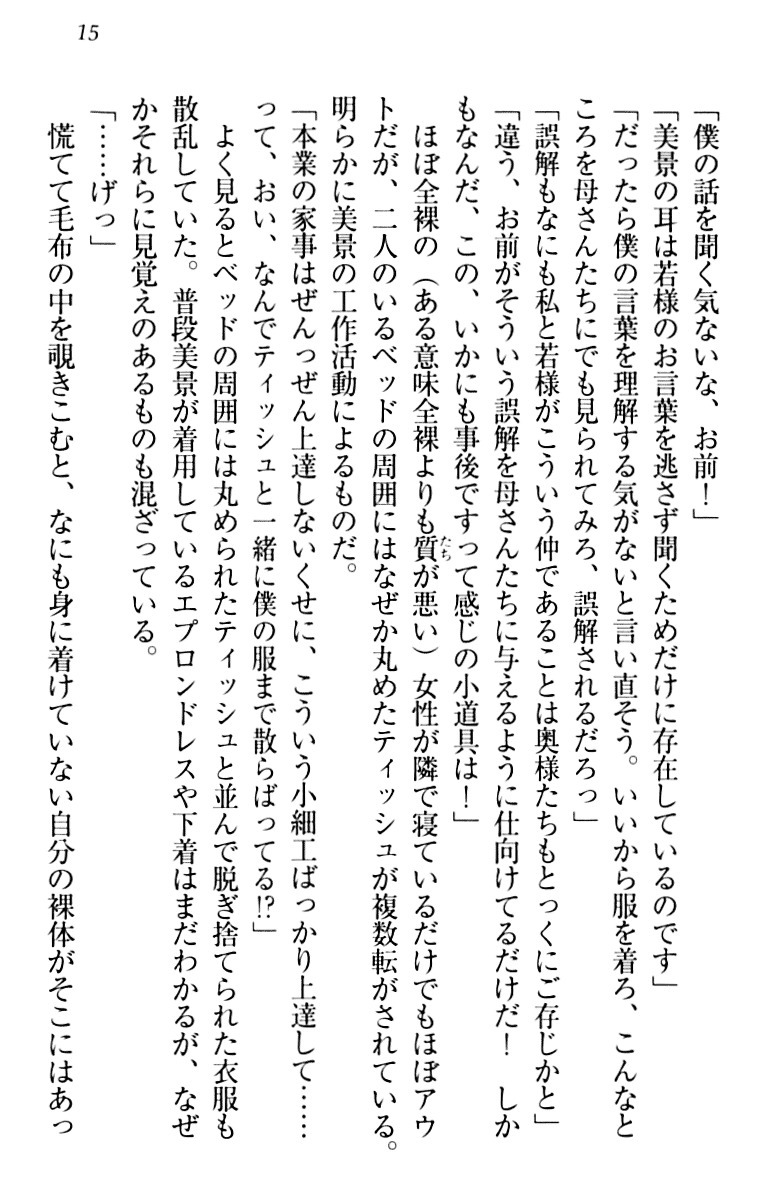 15
「僕の話を聞く気ないな、お前！」
「美景の耳は若様のお言葉を逃さず聞くためだけに存在しているのです」
「だったら僕の言葉を理解する気がないと言い直そう。いいから服を着ろ、こんなと
ころを母さんたちにでも見られてみろ、誤解されるだろっ」
「誤解もなにも私と若様がこういう仲であることは奥様たちもとっくにご存じかと」
「違う、お前がそういう誤解を母さんたちに与えるように仕向けてるだけだ！　しか
もなんだ、この、いかにも事後ですって感じの小道具は！」
　ほぼ全裸の（ある意味全裸よりも質が悪い）女性が隣で寝ているだけでもほぼアウ
たち
トだが、二人のいるベッドの周囲にはなぜか丸めたティッシュが複数転がされている。
明らかに美景の工作活動によるものだ。
「本業の家事はぜんっぜん上達しないくせに、こういう小細工ばっかり上達して……
って、おい、なんでティッシュと一緒に僕の服まで散らばってる!?」
　よく見るとベッドの周囲には丸められたティッシュと並んで脱ぎ捨てられた衣服も
散乱していた。普段美景が着用しているエプロンドレスや下着はまだわかるが、なぜ
かそれらに見覚えのあるものも混ざっている。
「……げっ」
　慌てて毛布の中を覗きこむと、なにも身に着けていない自分の裸体がそこにはあっ